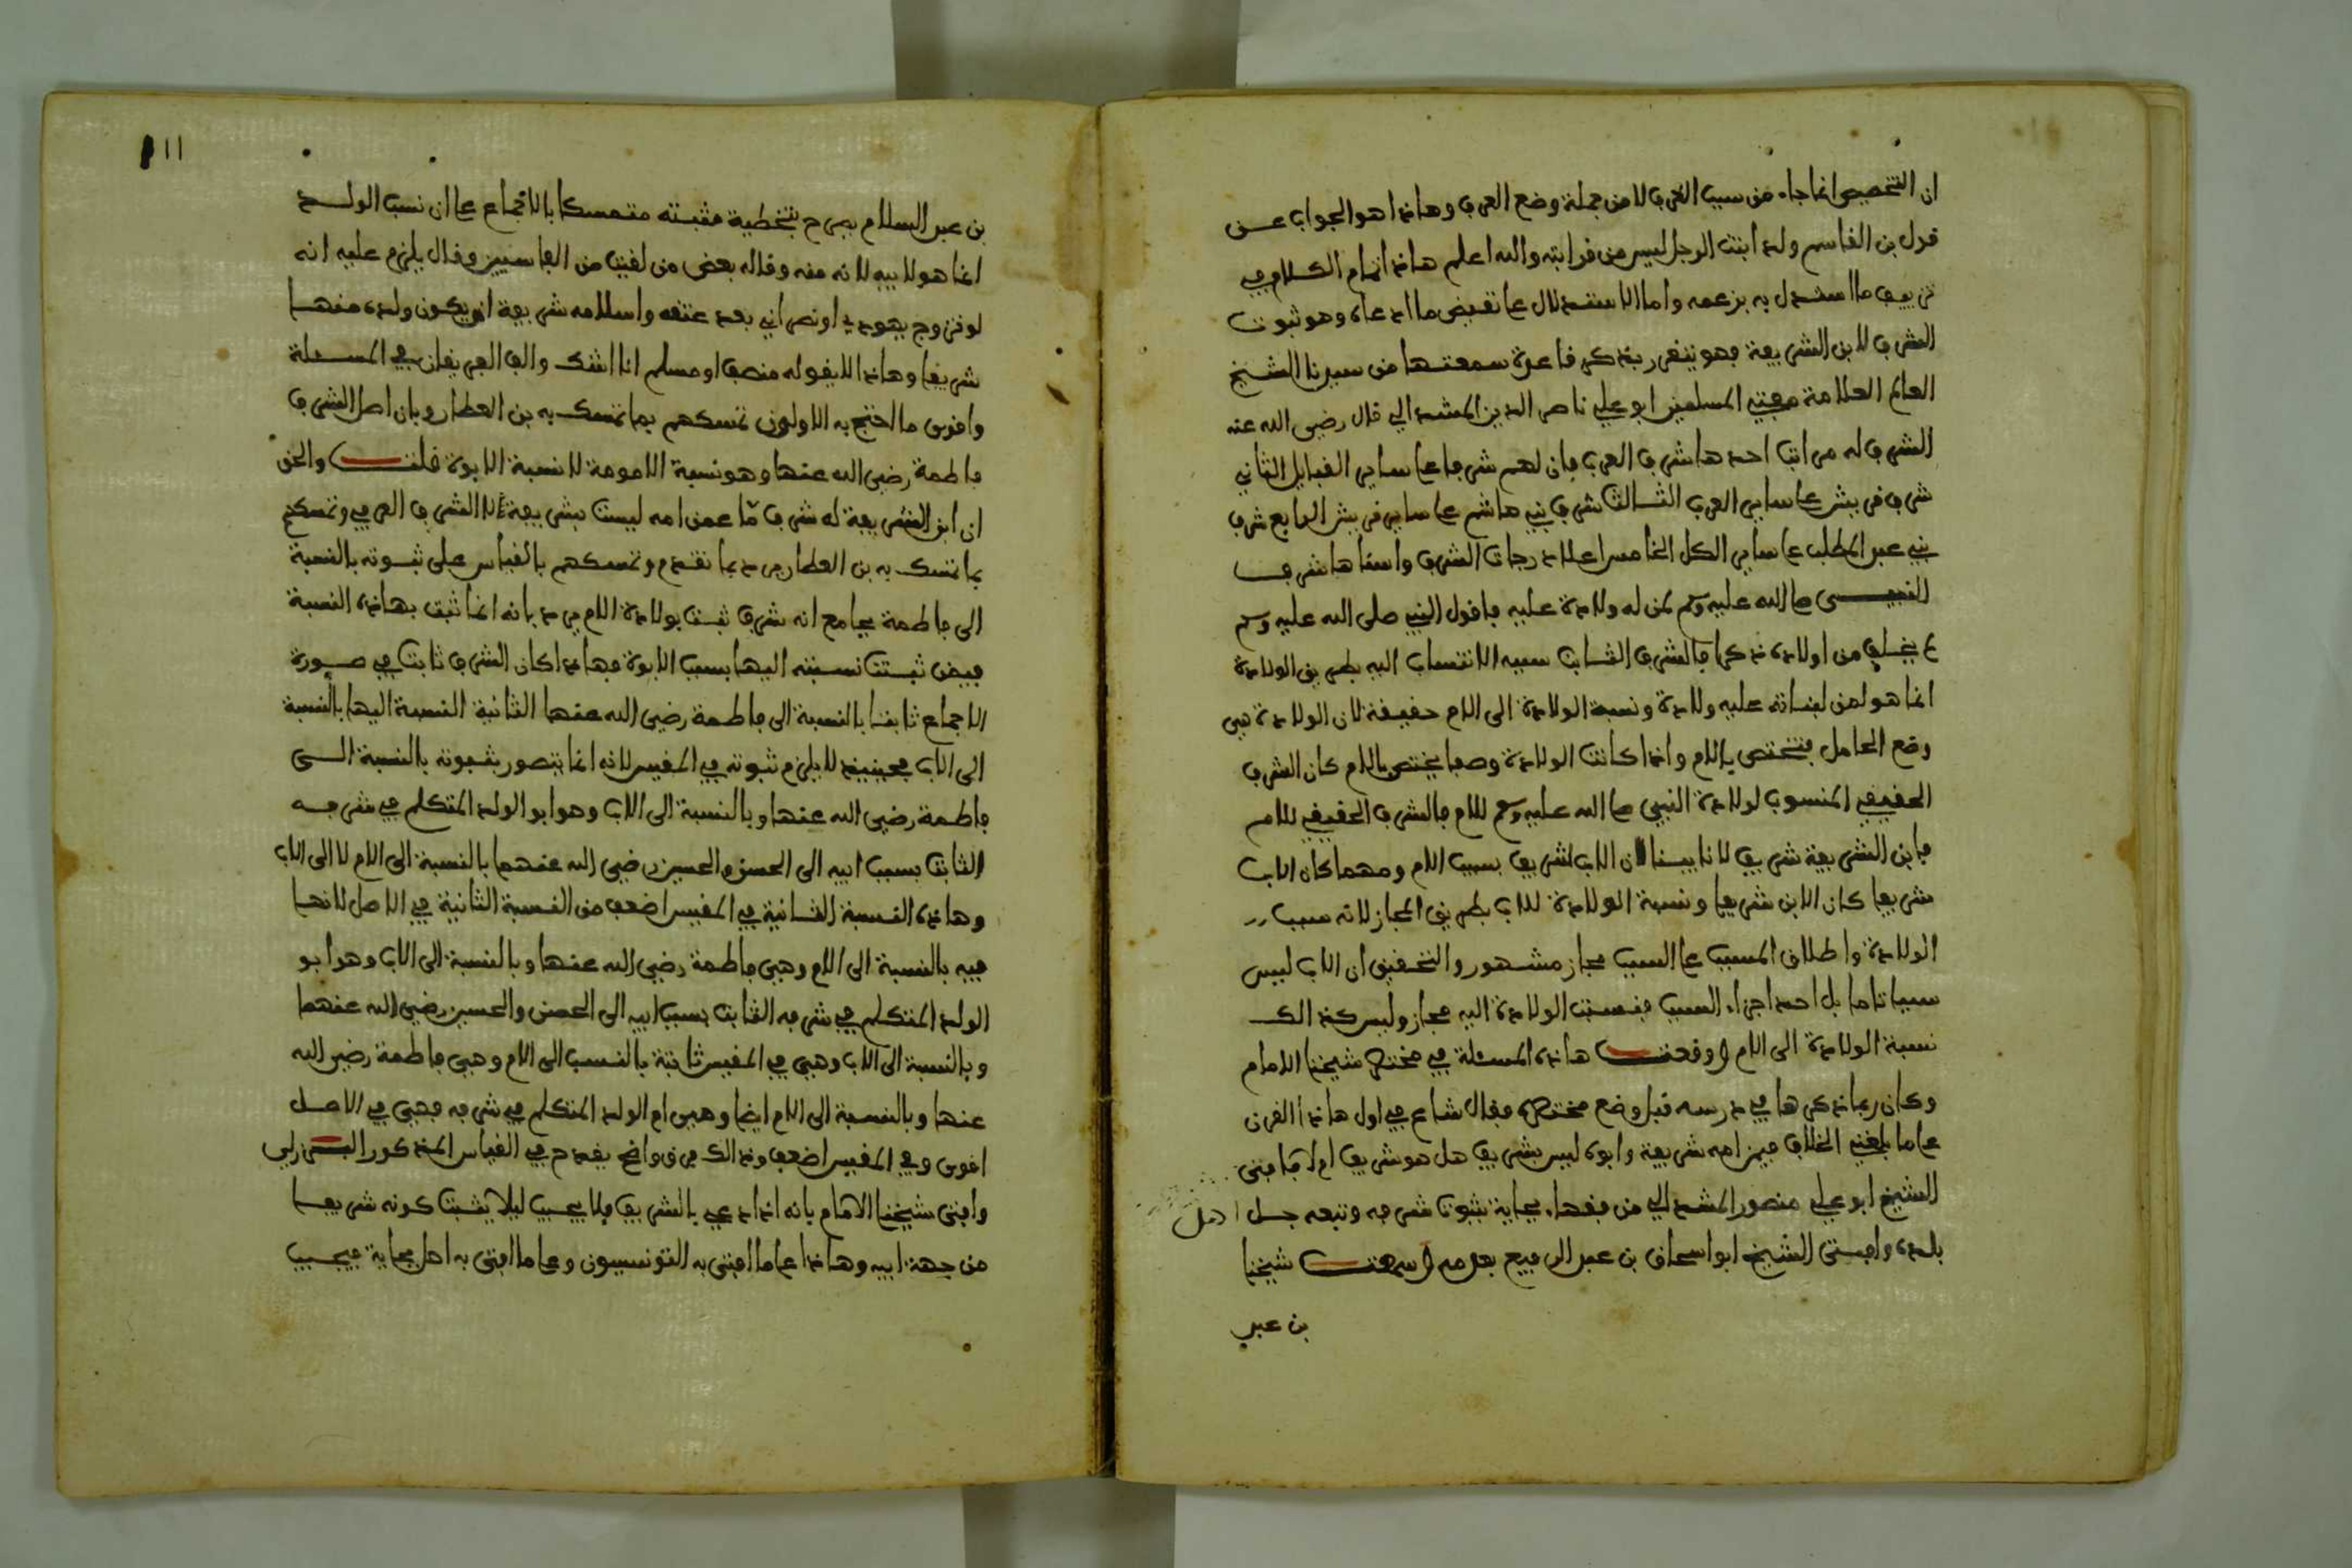 ان التخصيص انما جاء من سبب العرف لا من جملة وضع العرف وهاذا هو الجواب عن
قول بن القاسم ولد ابنت الرجل ليس من قرابته والله اعلم هاذا تمام الكلام في
تزييف ما استدل به بزعمه واما الاستدلال على نقيض ما ادعاه وهو ثبوت
الشرف للابن الشريفة فهو يتقرر بذكر قاعدة سمعتها من سيدنا الشيخ
العالم العلامة مفتي المسلمين ابو علي ناصر الدين المشدالي قال رضي الله عنه
الشرف له مراتب احدها شرف العرب فان لهم شرفا على ساير القبايل الثاني
شرف قريش على ساير العرب الثالث شرف بني هاشم على ساير قريش الرابع شرف
بني عبد المطلب على ساير الكل الخامس اعلا درجات الشرف واسناها شرف
النبي صلى الله عليه وسلم لمن له ولادة عليه فاقول النبي صلى الله عليه وسلم
لم يخلف من اولاده ذكرا فالشرف الثابت سببه الانتساب اليه بطريق الولادة
انما هو لمن لبناته عليه ولادة ونسبة الولادة الى الام حقيقة لان الولادة هي
وضع الحامل فتختص بالام واذا كانت الولادة وصفا يختص بالام كان الشرف
الحقيقي المنسوب لولادة النبي صلى الله عليه وسلم للام فالشرف الحقيقي للام
فابن الشريفة شريف لانا بينا ان الاب اشريف بسبب الام ومهما كان الاب
شريفا كان الابن شريفا ونسبة الولادة للاب بطريق المجاز لانه سبب
الولادة واطلاق المسبب على السبب مجاز مشهور والتحقيق ان الاب ليس
سببا تاما بل احد اجزاء السبب فنسبت الولادة اليه مجاز وليس كذالك
نسبة الولادة الى الام ووقعت هاذه المسئلة في مختصر شيخنا الامام
وكان ربما ذكرها في درسه قبل وضع مختصره فقال شاع في اول هاذا القرن
على ما بلغني الخلاف فيمن امه شريفة وابوه ليس بشريف هل هو شريف ام لا فافتى
الشيخ ابو علي منصور المشدالي من فقهاء بجاية بثبوت شرفه وتبعه جل اهل
بلده وافتى الشيخ ابو اسحاق بن عبد الرفيع بعدمه وسمعت شيخنا
بن عبد
111
بن عبد السلام يصرح بتخطية مثبته متمسكا بالاجماع على ان نسب الولد
انما هو لابيه لا لامه وقاله بعض من لقيت من الفاسيين وقال يلزم عليه انه
لو تزوج يهودي او نصراني بعد عتقه واسلامه شريفة ان يكون ولده منها
شريفا وهاذا لا يقوله منصف او مسلم انا اشك والف الفريقان في المسئلة
واقوى ما احتج به الاولون تمسكهم بما تمسك به بن العطار وبان اصل الشرف
فاطمة رضي الله عنها وهو نسبة الامومة لا نسبة الابوة قلت والحق
ان ابن الشريفة له شرف ما عمن امه ليست بشريفة لا الشرف العرفي وتمسكهم
بما تمسك به بن العطار يرد بما تقدم وتمسكهم بالقياس على ثبوته بالنسبة
الى فاطمة بجامع انه شرف ثبت بولادة الام يرد بانه انما ثبت بهاذه النسبة
فيمن ثبتت نسبته اليها بسبب الابوة فهاذا كان الشرف ثابت في صورة
الاجماع ثابتا بالنسبة الى فاطمة رضي الله عنها الثانية النسبة اليها بالنسبة
الى الاب فحينيذ لا يلزم ثبوته في المقيس لانه انما يتصور بثبوته بالنسبة الى
فاطمة رضي الله عنها وبالنسبة الى الاب وهو ابو الولد المتكلم في شرفه
الثابت بسبب ابيه الى الحسن والحسين رضي الله عنهما بالنسبة الى الام لا الى الاب
وهاذه النسبة الثانية في المقيس اضعف من النسبة الثانية في الاصل لانها
فيه بالنسبة الى الام وهي فاطمة رضي الله عنها وبالنسبة الى الاب وهو ابو
الولد المتكلم في شرفه الثابت بسبب ابيه الى الحسن والحسين رضي الله عنهما
وبالنسبة الى الاب وهي في المقيس ثابتة بالنسب الى الام وهي فاطمة رضي الله
عنها وبالنسبة الى الام ايضا وهي ام الولد المتكلم في شرفه فهي في الاصل
اقوى وفي المقيس اضعف وذالك فرق واضح يقدح في القياس المذكور البرزلي
وافتى شيخنا الامام بانه اذا دعي بالشريف فلا يجيب ليلا يثبت كونه شريفا
من جهة ابيه وهاذا على ما افتى به التونسيون وعلى ما افتى به اهل بجاية فيجيب